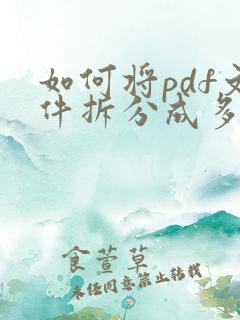 如何将pdf文
件拆分成多
食萱草
未经同意禁止转载